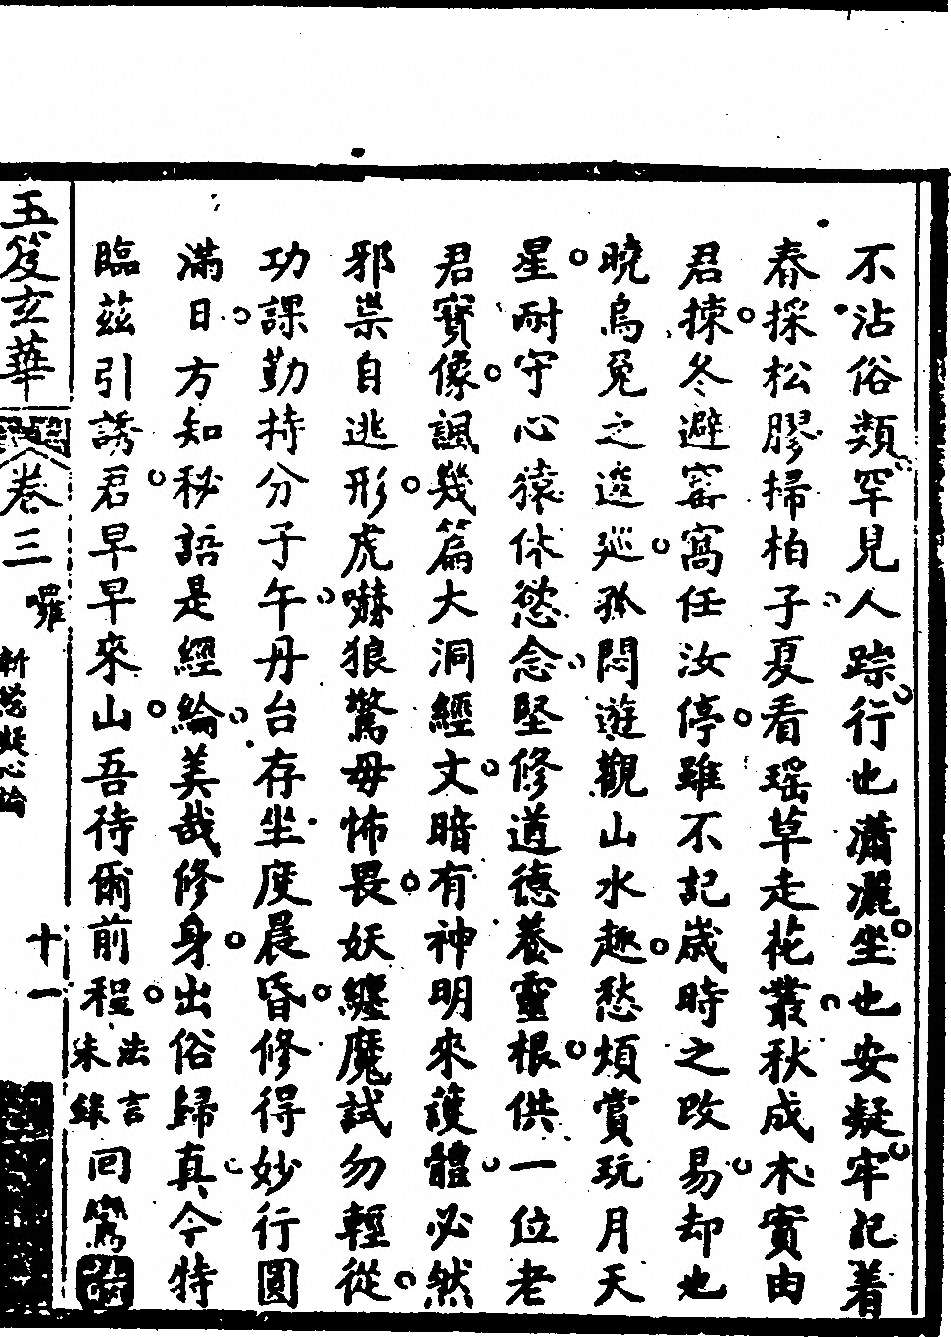 不沾俗類罕見人踪行也瀟灑坐也安凝牢記着
春採松膠掃柏子夏看瑶草走花叢秋成木實由
君揀冬避窰窩任汝停雖不記歲時之改易却也
曉烏兔之逡巡孤悶遊觀山水趣愁煩賞玩月天
星耐守心猿休慾念堅修道德養靈根供一位老
君寶像諷幾篇大洞經文暗有神明來護體必然
邪祟自逃形虎嚇狼驚毋怖畏妖纏魔試勿輕從
功課勤持分子午丹台存坐度晨昏修得妙行圓
滿日方知秘語是經綸美哉修身出俗歸真今特
臨茲引誘君早早來山吾待爾前程法言未錄回鸞
玉笈玄華
卷三
囉
十一